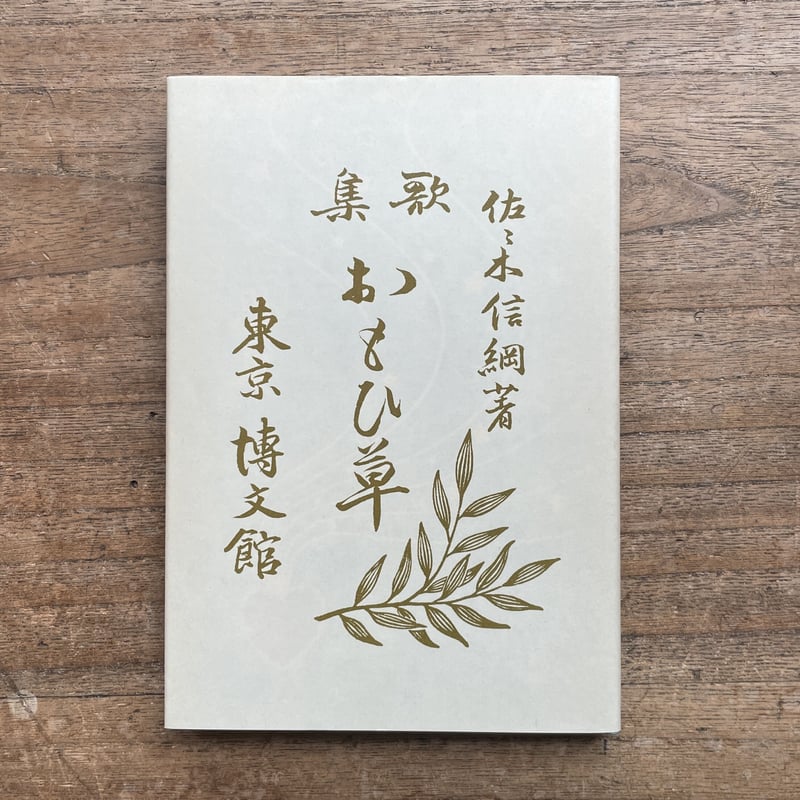 佐々木信綱著
歌集
おもひ草
東京 博文館